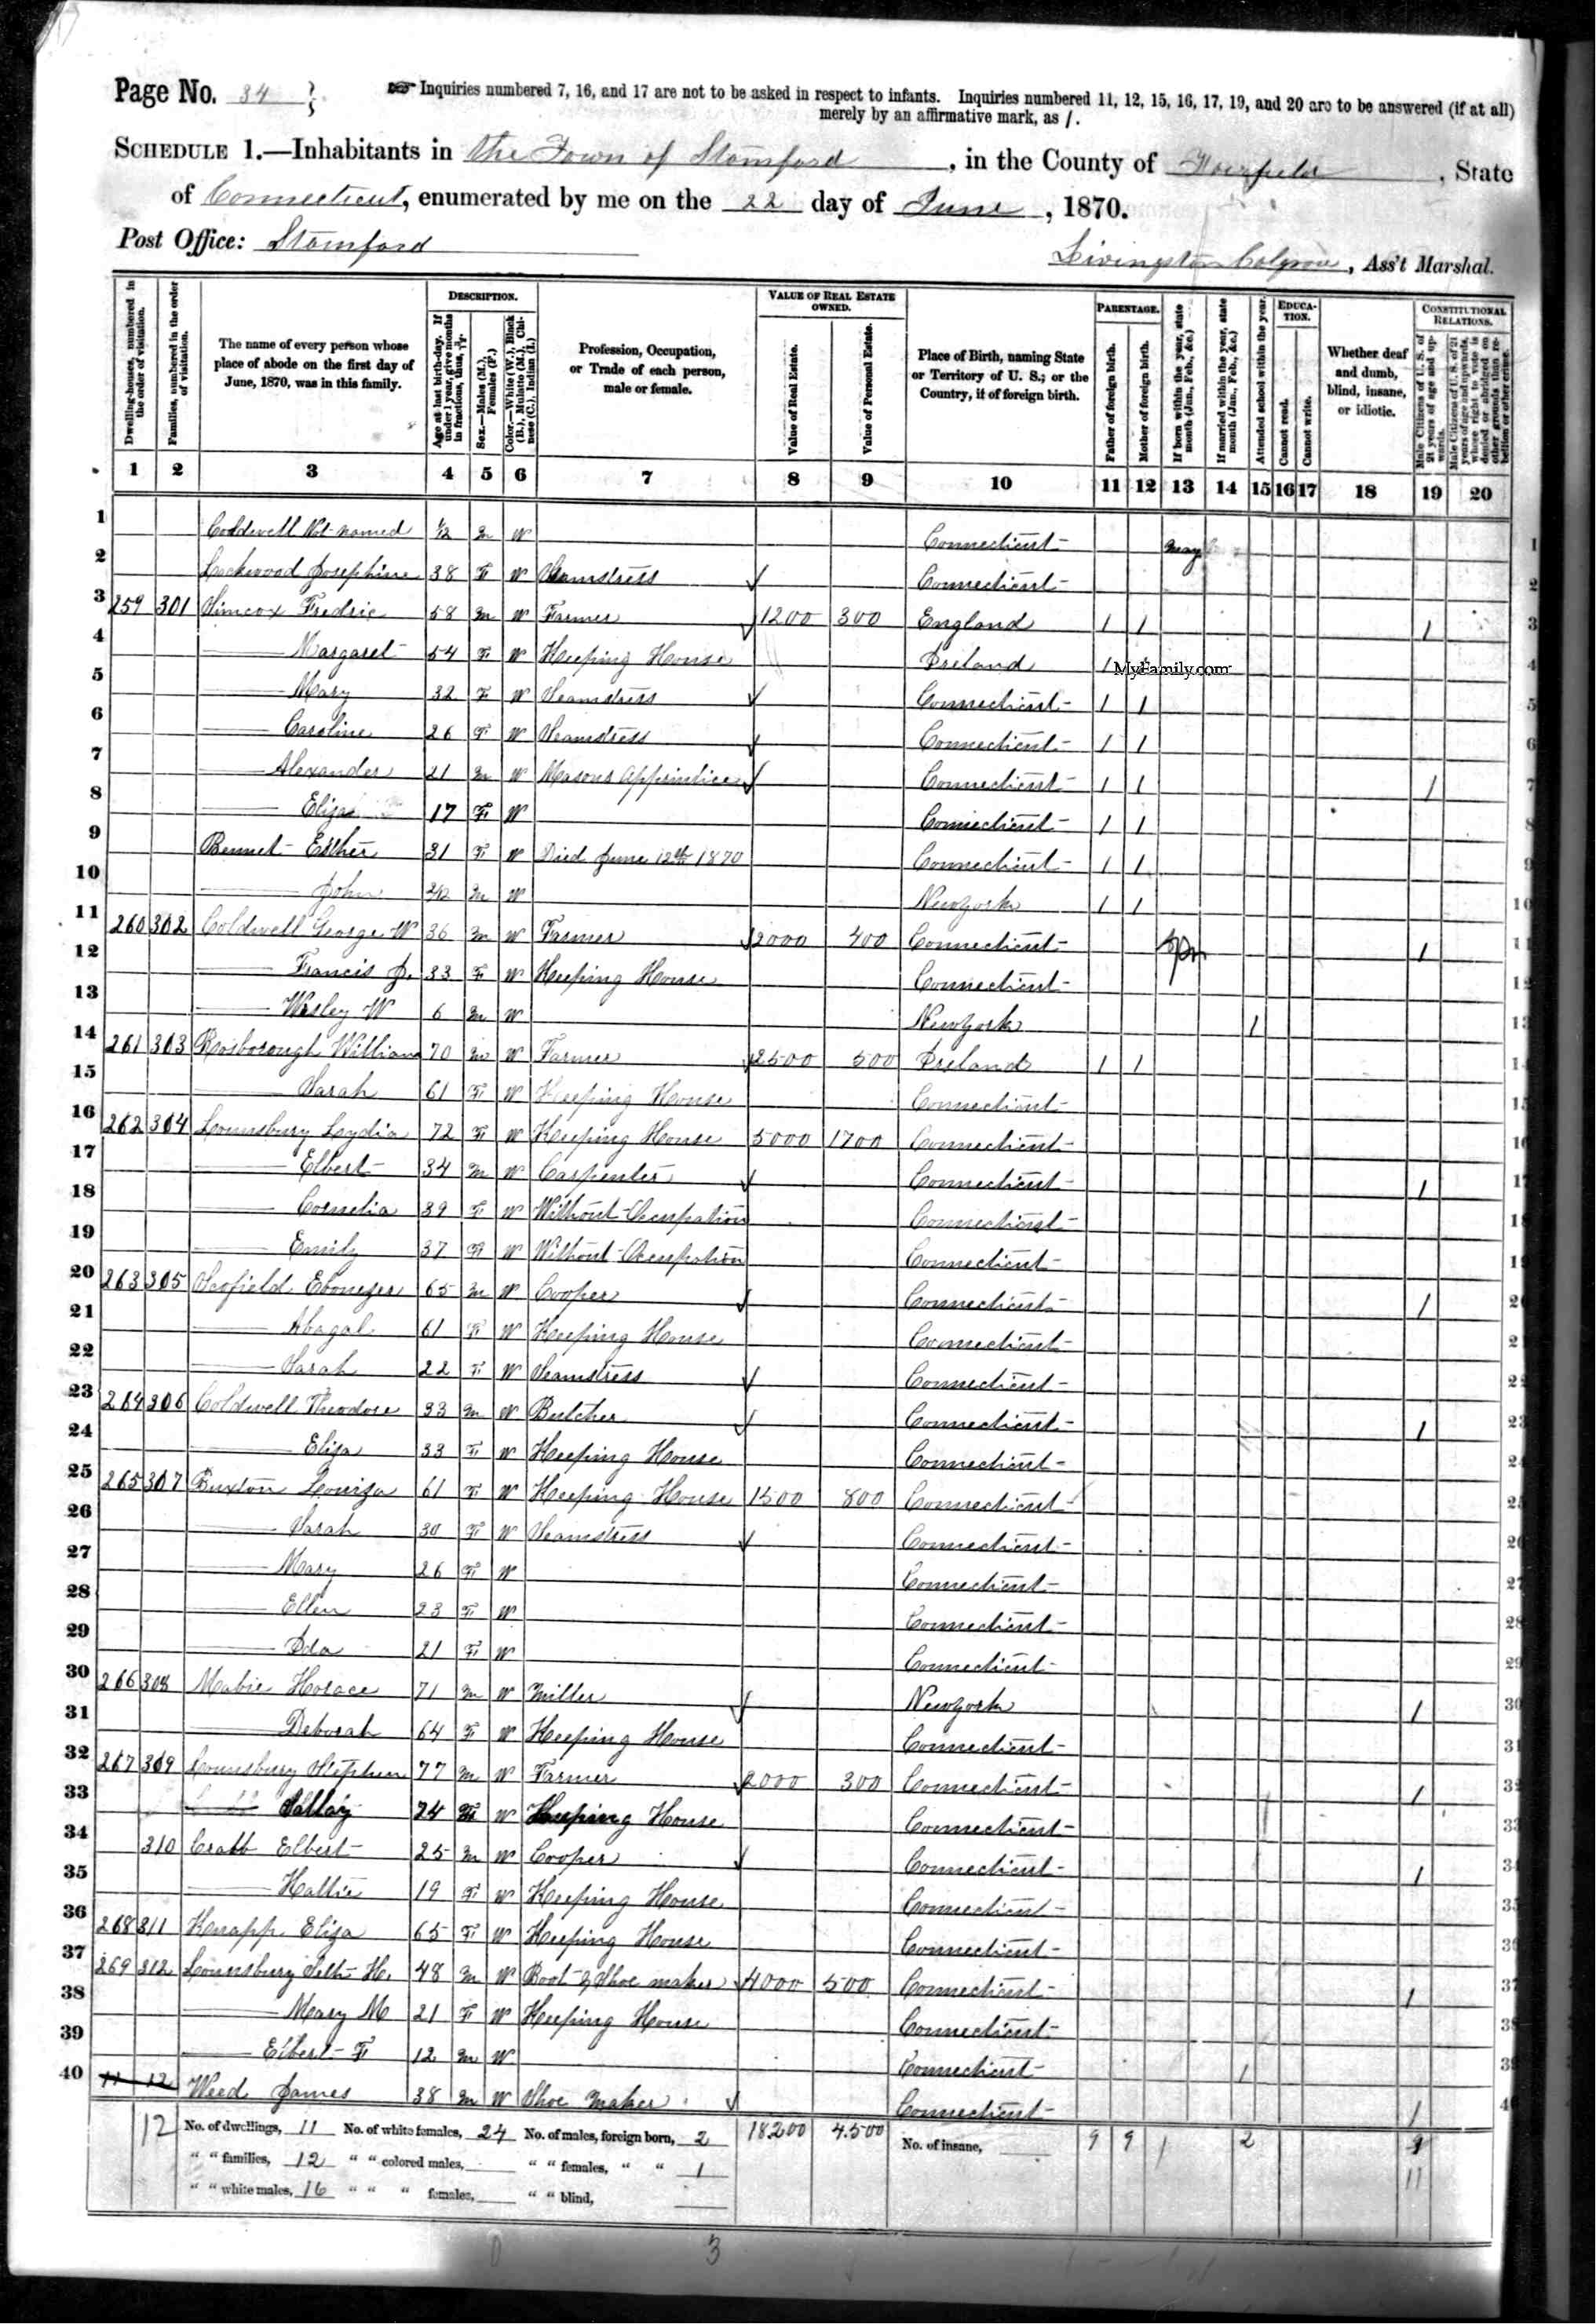 Page No. 34
Inquiries numbered 7, 16, and 17 are not to be asked in respect to infants. Inquiries numbered 11, 12, 15, 16, 17, 19, and 20 are to be answered (if at all)
merely by an affirmative mark, as /.
SCHEDULE 1.—Inhabitants in the Town of Stamford, in the County of Fairfield, State
of Connecticut, enumerated by me on the 22 day of June, 1870.
Post Office: Stamford
Livingston, Ass't Marshal.
Dwelling-houses, numbered in the order of visitation.
Families, numbered in the order of visitation.
The name of every person whose place of abode on the first day of June, 1870, was in this family.
DESCRIPTION.
Age at last birth-day. If under 1 year, give months in fractions, thus,
Sex.—Males (M.), Females (F.)
Color.—White (W.), Black (B.), Mulatto (M.), Chinese (C.), Indian (I.)
Profession, Occupation, or Trade of each person, male or female.
VALUE OF REAL ESTATE OWNED.
Value of Real Estate.
Value of Personal Estate.
Place of Birth, naming State or Territory of U. S.; or the Country, if of foreign birth.
PARENTAGE.
Father of foreign birth.
Mother of foreign birth.
If born within the year, state month (Jan., Feb., &c.)
If married within the year, state month (Jan., Feb., &c.)
Attended school within the year.
EDUCATION.
Cannot read.
Cannot write.
Whether deaf and dumb, blind, insane, or idiotic.
CONSTITUTIONAL RELATIONS.
Male Citizens of U. S. of 21 years of age and upwards.
Male Citizens of U. S. of 21 years of age and upwards, whose right to vote is denied or abridged on other grounds than rebellion or other crime.
1 2 3 4 5 6 7 8 9 10 11 12 13 14 15 16 17 18 19 20
1 Coldwell Not named M W Connecticut May 1
2 Lockwood Josephine 38 F W Seamstress Connecticut 2
3 259 301 Simcox Fredric 58 M W Farmer 1200 300 England 1 1 1 3
4 Margaret 54 F W Keeping House Ireland 1 MyFamily.com 4
5 Mary 32 F W Seamstress Connecticut 1 1 5
6 Caroline 26 F W Seamstress Connecticut 1 1 6
7 Alexander 21 M W Masons Apprintice Connecticut 1 1 1 7
8 Eliza 17 F W Connecticut 1 1 8
9 Bennet Esther 31 F W Died June 12th 1870 Connecticut 1 1 9
10 John M W New York 1 1 10
11 260 302 Coldwell George W 36 M W Farmer 2000 400 Connecticut 1 11
12 Francis J. 33 F W Keeping House Connecticut 12
13 Wesley W 6 M W New York 1 13
14 261 303 Rosborough William 70 M W Farmer 2500 500 Ireland 1 1 14
15 Sarah 61 F W Keeping House Connecticut 15
16 262 304 Lounsbury Lydia 72 F W Keeping House 5000 1700 Connecticut 16
17 Elbert 34 M W Carpenter Connecticut 1 17
18 Cornelia 39 F W Without Occupation Connecticut 18
19 Emily 37 F W Without Occupation Connecticut 19
20 263 305 Scofield Ebenezer 65 M W Cooper Connecticut 1 20
21 Abagal 61 F W Keeping House Connecticut 21
22 Sarah 22 F W Seamstress Connecticut 22
23 264 306 Coldwell Theodore 33 M W Butcher Connecticut 1 23
24 Eliza 33 F W Keeping House Connecticut 24
25 265 307 Buxton Louiza 61 F W Keeping House 1500 800 Connecticut 25
26 Sarah 30 F W Seamstress Connecticut 26
27 Mary 26 F W Connecticut 27
28 Ellen 23 F W Connecticut 28
29 Ida 21 F W Connecticut 29
30 266 308 Mabie Horace 71 M W Miller New York 1 30
31 Deborah 64 F W Keeping House Connecticut 31
32 267 309 Lounsbury Stephen 77 M W Farmer 2000 300 Connecticut 1 32
33 Sallay 74 F W Keeping House Connecticut 33
34 310 Crabb Elbert 25 M W Cooper Connecticut 1 34
35 Hattie 19 F W Keeping House Connecticut 35
36 268 311 Knapp Eliza 65 F W Keeping House Connecticut 36
37 269 312 Lounsbury Seth H. 48 M W Boot & Shoe maker 4000 500 Connecticut 1 37
38 Mary M 21 F W Keeping House Connecticut 38
39 Elbert F 12 M W Connecticut 1 39
40 11 12 Weed James 38 M W Shoe Maker Connecticut 1 40
12 No. of dwellings, 11 No. of white females, 24 No. of males, foreign born, 2 18200 4500 No. of insane, 9 9 1 2
" " families, 12 " " colored males, " " females, " " 1 11
" " white males, 16 " " " females, " " blind,
3